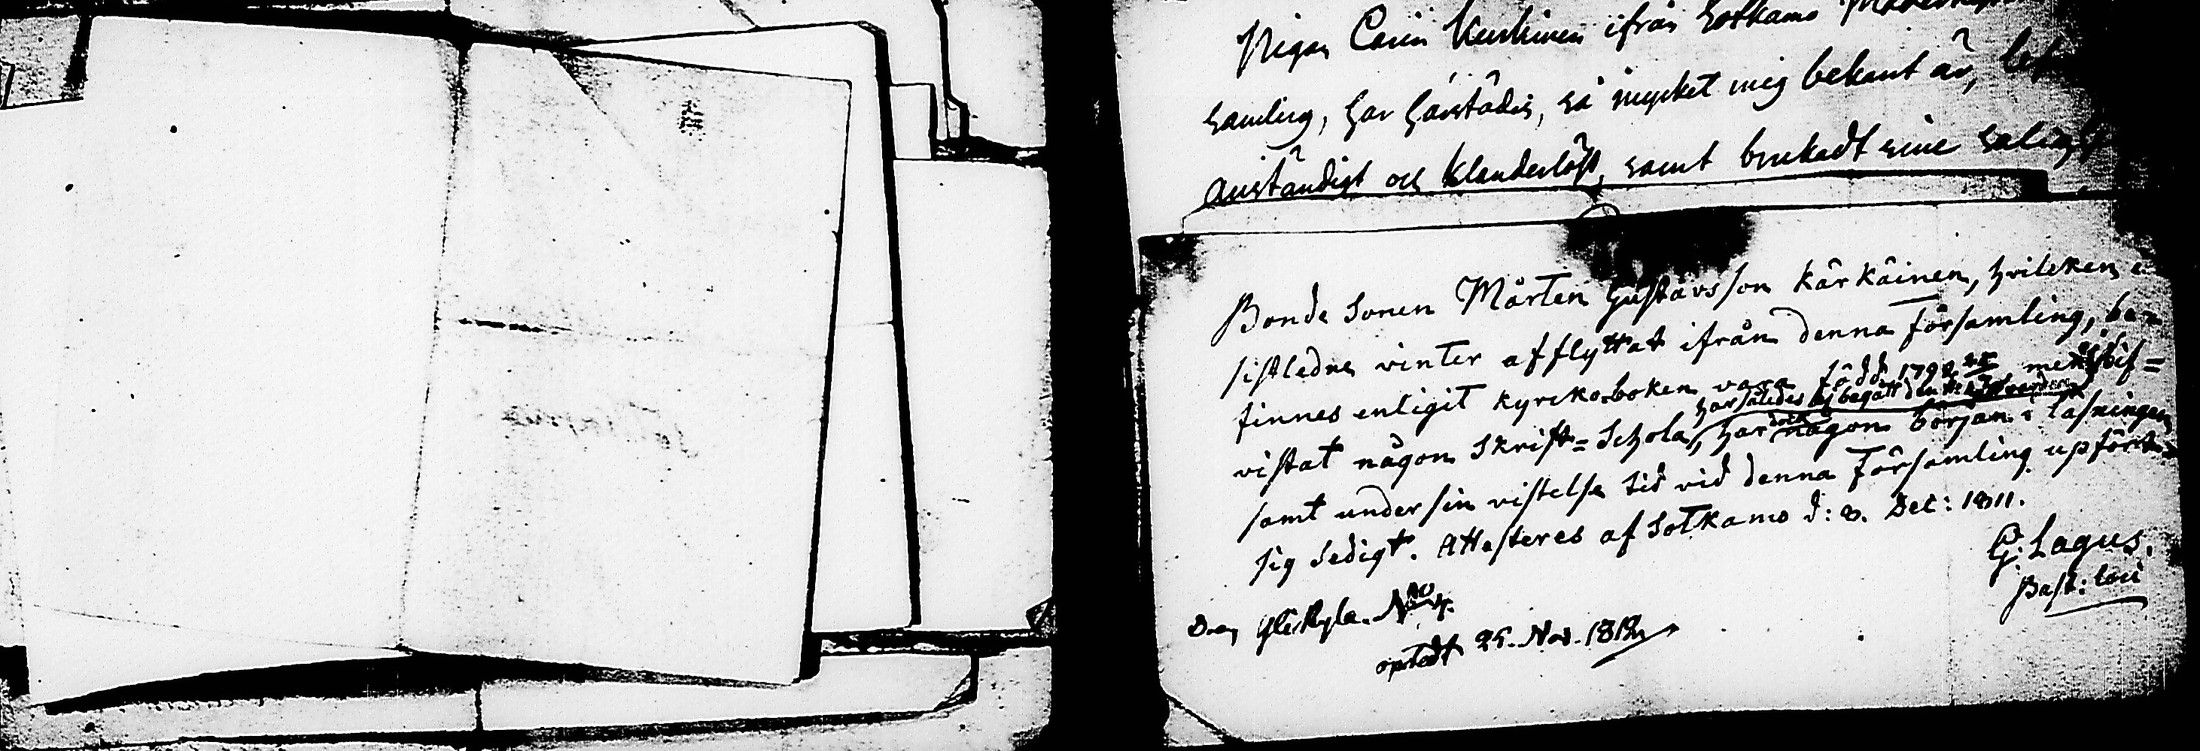 Pigan Carin Keskinen ifrån Sotkamo
samling, har härstädes, så mycket mig bekant är,
anständigt och klanderlöst, samt brukadt sine salig
Bonde Sonen Mårten Gustavsson Kärkäinen, hvilcken
sistledne vinter afflyttat ifrån denna Församling, be-
finnes enligit kyrckoboken vara född 1792 men ej bif=
har således ej begått den
vistat någon Skrift=Schola, har någon början i läsningen
samt under sin vistelse tid vid denna Församling upfört
sig sedigt. Attesteres af Sotkamo d: 8. Dec: 1811.
G: Lagus.
Past: loci
No 4.
25. Nov. 1812